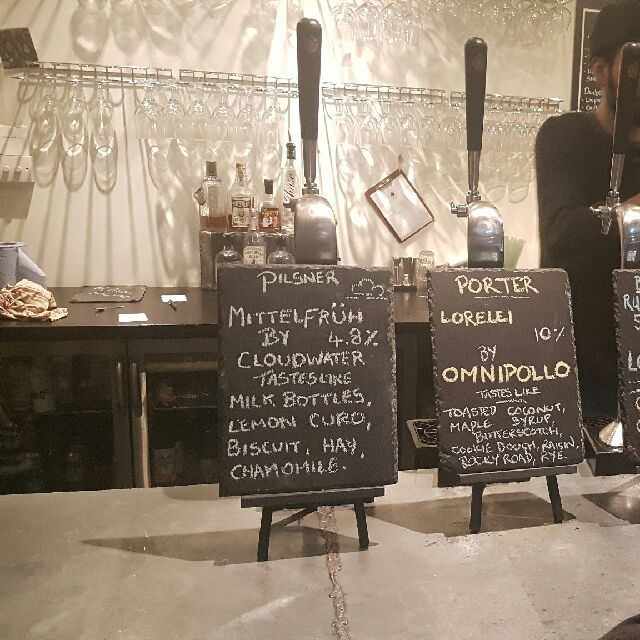 PILSNER
MITTELFRÜH
BY 4.8%
CLOUDWATER
TASTES LIKE
MILK BOTTLES,
LEMON CURD,
BISCUIT, HAY,
CHAMOMILE.
PORTER
LORELEI
10%
BY
OMNIPOLLO
TASTES LIKE
TOASTED COCONUT,
MAPLE SYRUP
BUTTERSCOTCH,
COOKIE DOUGH, RAISIN,
ROCKY ROAD, RYE.